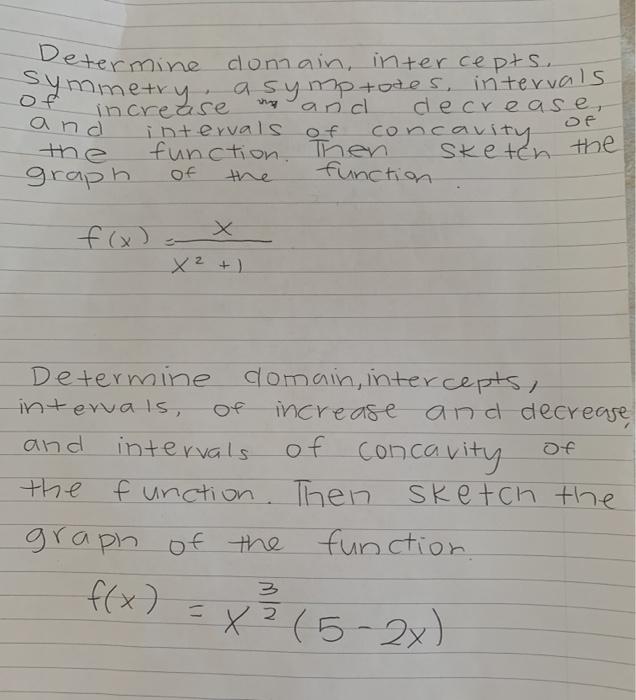 Determine domain, intercepts,
symmetry, asymptotes, intervals
of increase and decrease,
and intervals of concavity of
the function. Then sketch the
graph of the function.
f(x) = x
x² + 1
Determine domain, intercepts,
intervals, of increase and decrease,
and intervals of concavity of
the function. Then sketch the
graph of the function.
f(x) = x^(3/2) (5-2x)